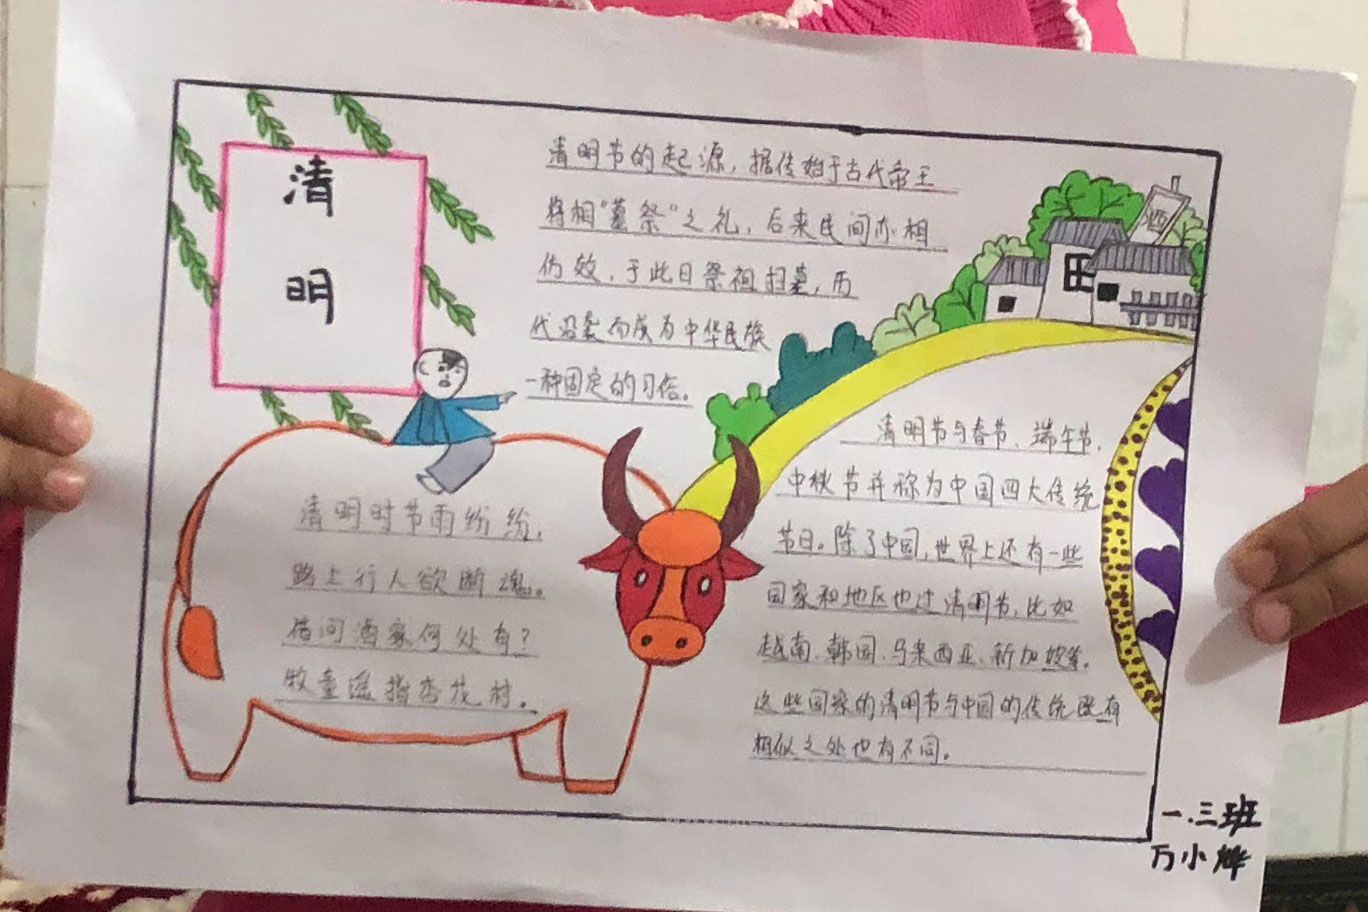 清
明
清明节的起源，据传始于古代帝王
将相"墓祭"之礼，后来民间亦相
仿效，于此日祭祖扫墓，历
代沿袭而成为中华民族
一种固定的习俗。
酒
清明时节雨纷纷，
路上行人欲断魂。
借问酒家何处有？
牧童遥指杏花村。
清明节与春节、端午节、
中秋节并称为中国四大传统
节日。除了中国，世界上还有一些
国家和地区也过清明节，比如
越南、韩国、马来西亚、新加坡等。
这些国家的清明节与中国的传统既有
相似之处也有不同。
一.三班
万小烨